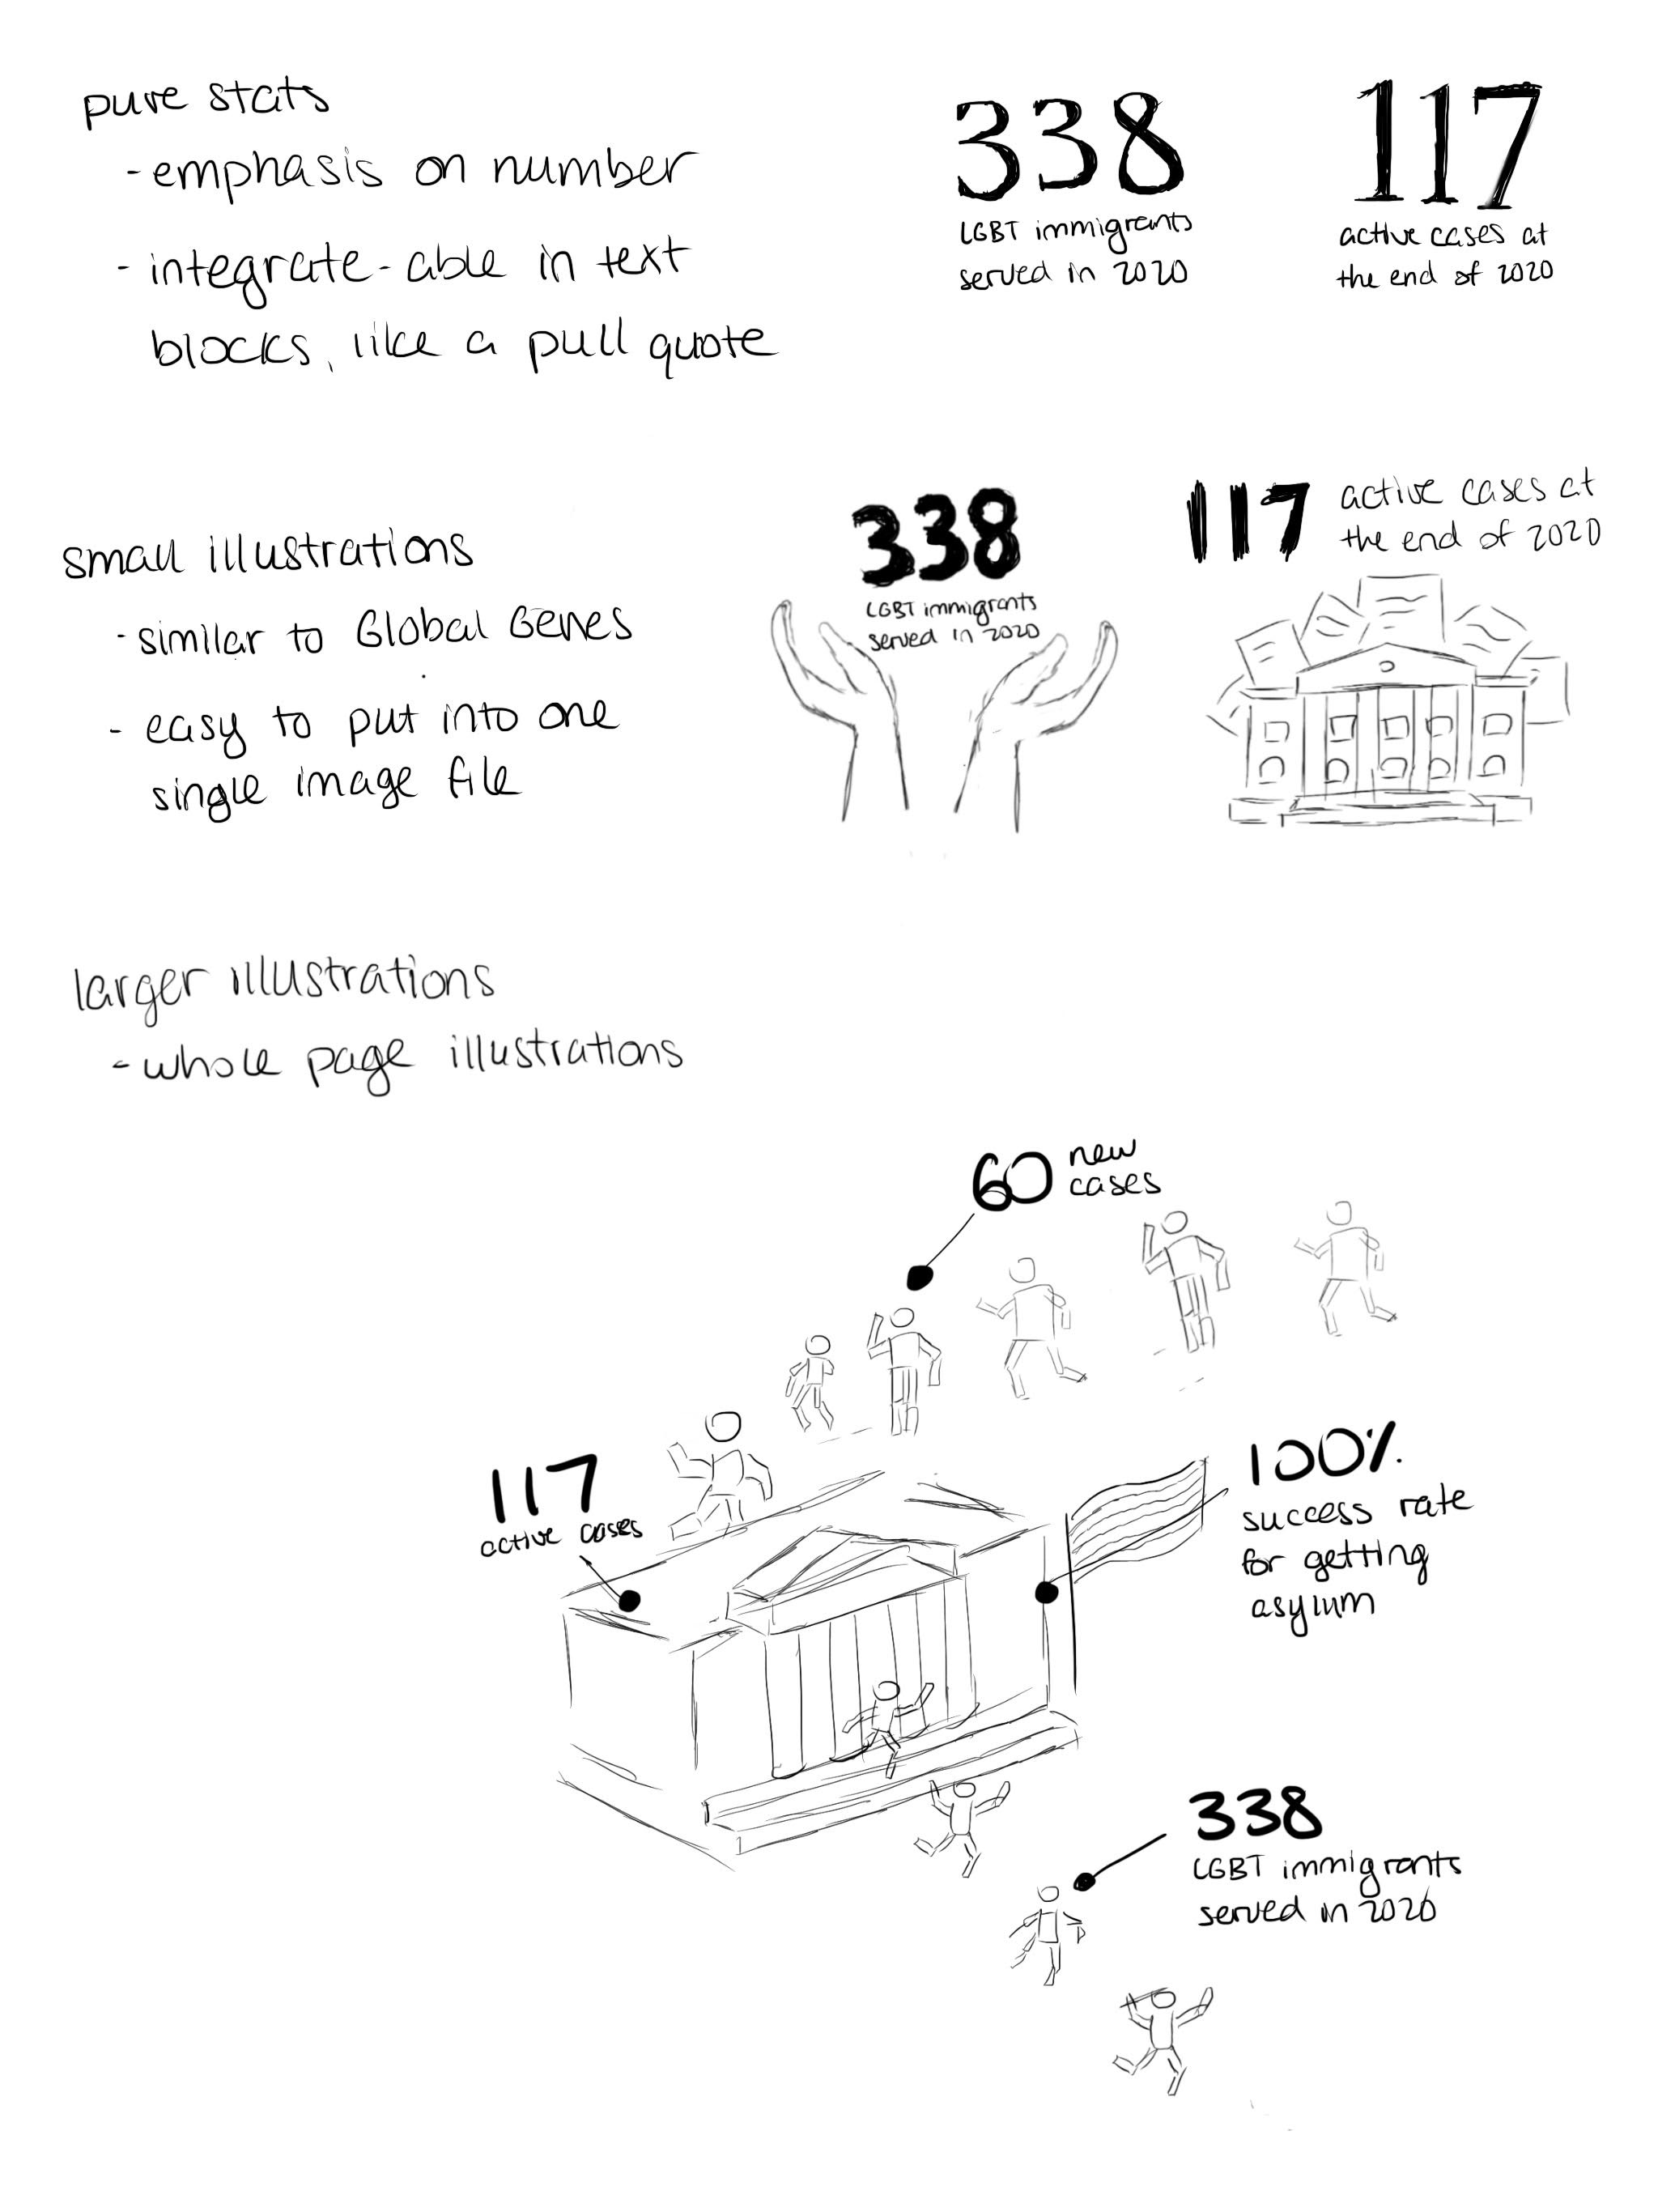 pure stats
- emphasis on number
- integrate-able in text
blocks, like a pull quote
338
LGBT immigrants
served in 2020
117
active cases at
the end of 2020
small illustrations
- similar to Global Genes
- easy to put into one
single image file
338
LGBT immigrants
served in 2020
117 active cases at
the end of 2020
larger illustrations
- whole page illustrations
60 new
cases
117
active cases
100%
success rate
for getting
asylum
338
LGBT immigrants
served in 2020